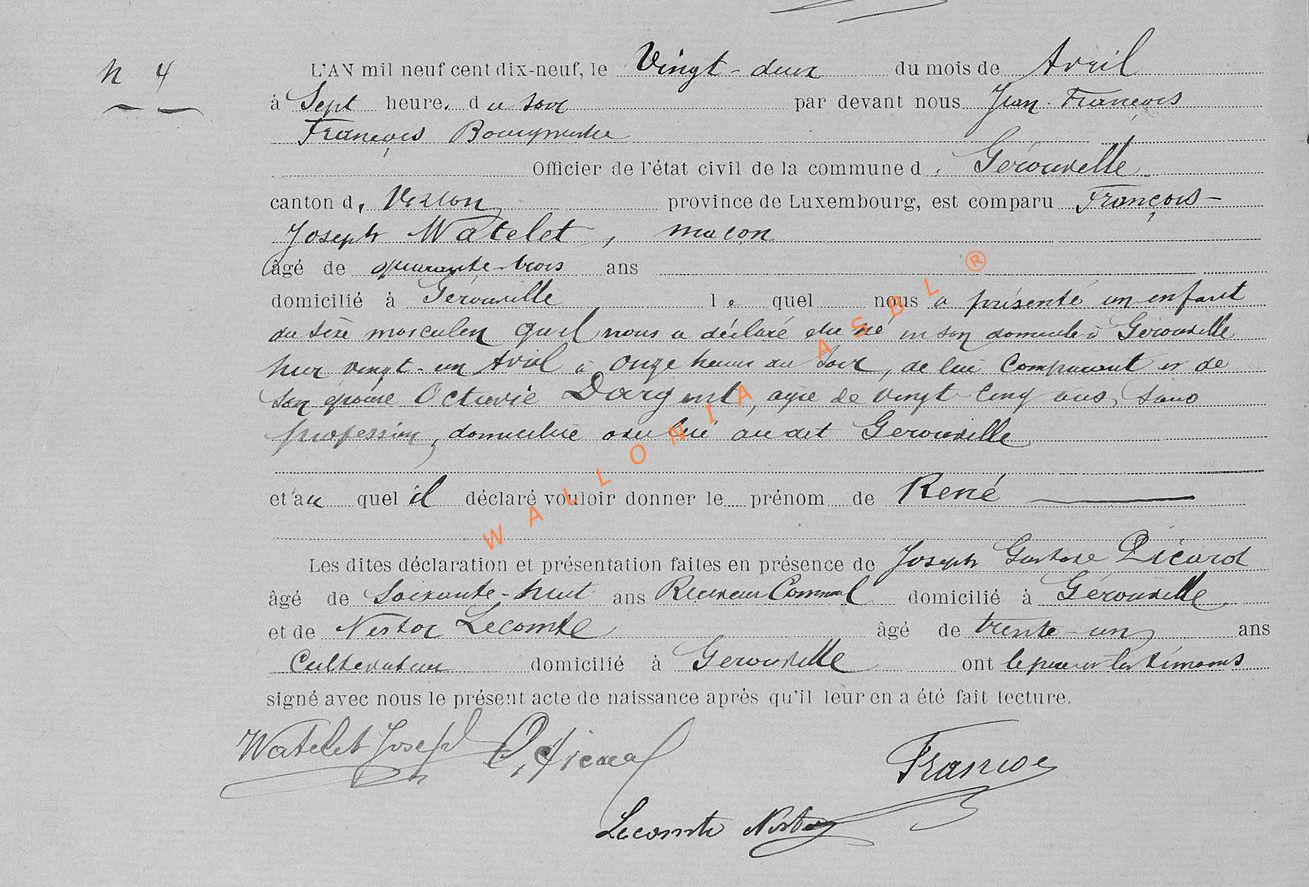 N 4
L'AN mil neuf cent dix-neuf, le Vingt-deux du mois de Avril
à Sept heure, du soir par devant nous Jean-François
François Bourgmestre
Officier de l'état civil de la commune d, Gérouville
canton d, Virton province de Luxembourg, est comparu François-
Joseph Watelet, maçon
âgé de quarante-trois ans
domicilié à Gérouville le quel nous a présenté un enfant
du sexe masculin qu'il nous a déclaré être né en son domicile à Gérouville
hier vingt-un Avril à onze heures du soir, de lui comparant et de
son épouse Octavie Dargent, agée de vingt cinq ans, sans
profession, domiciliée audit Gerouville
et au quel il déclaré vouloir donner le prénom de René
Les dites déclaration et présentation faites en présence de Joseph Gustave Picard
âgé de Soixante-huit ans Receveur Communal domicilié à Gérouville
et de Nestor Lecomte âgé de trente-un ans
Cultivateur domicilié à Gerouville ont le père et les témoins
signé avec nous le présent acte de naissance après qu'il leur en a été fait lecture.
Watelet Joseph François
Lecomte Nestor
WALLONIA ASBL ®